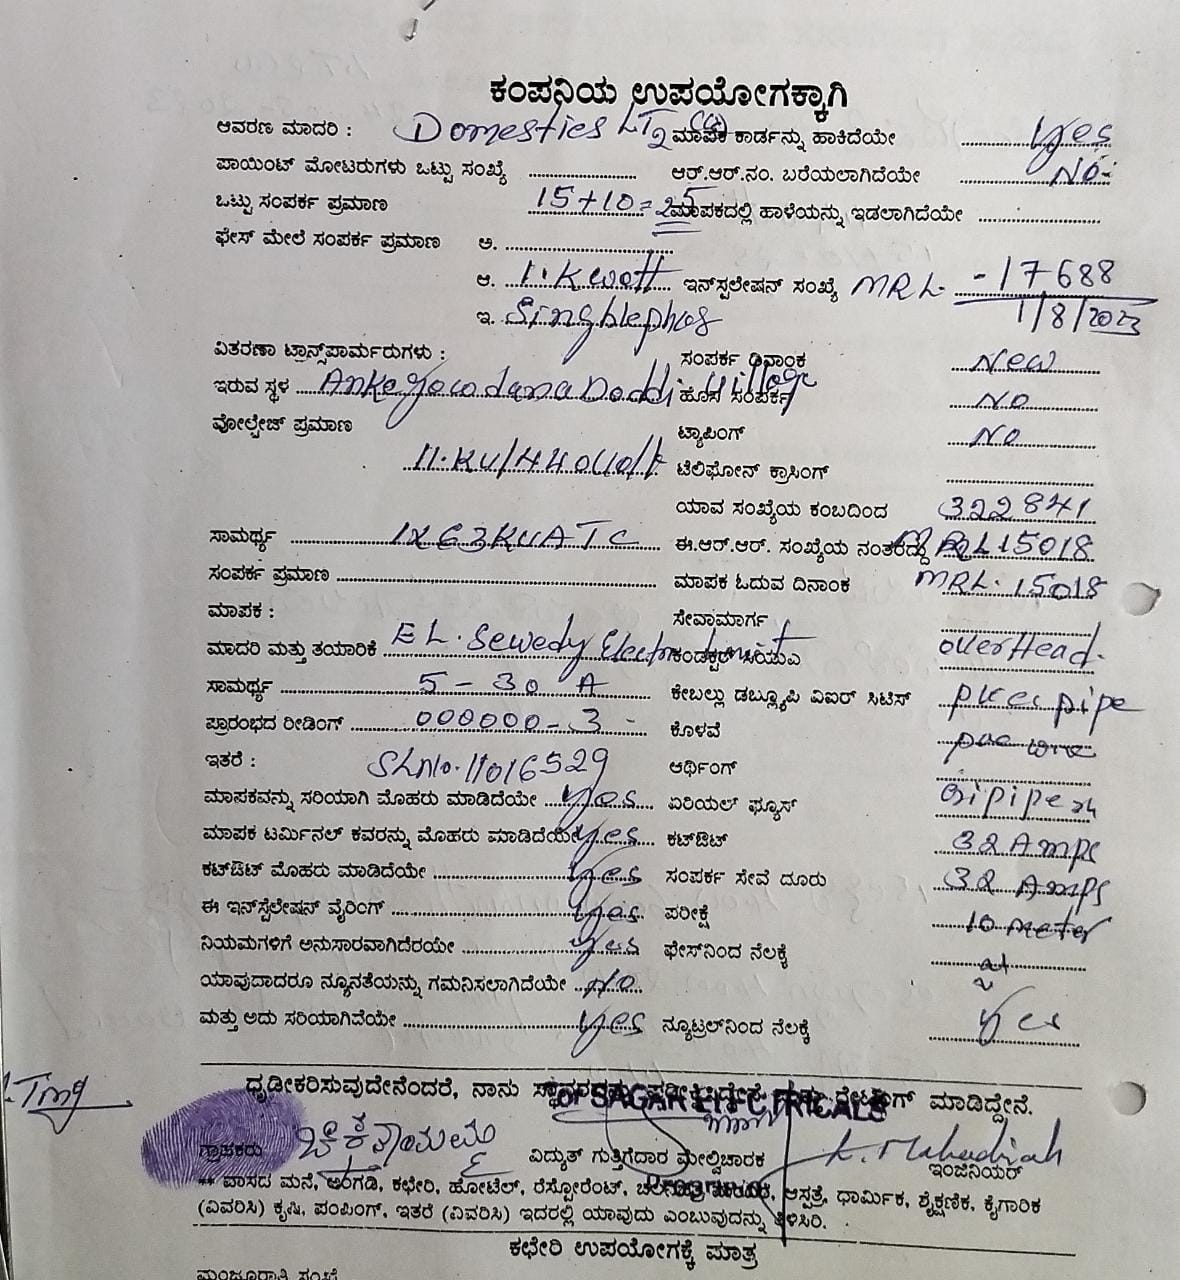 ಕಂಪನಿಯ ಉಪಯೋಗಕ್ಕಾಗಿ
ಆವರಣ ಮಾದರಿ : Domestics LT2 (a) ಮಾಪಕ ಕಾರ್ಡನ್ನು ಹಾಕಿದೆಯೇ Yes
ಪಾಯಿಂಟ್ ಮೋಟರುಗಳು ಒಟ್ಟು ಸಂಖ್ಯೆ ಆರ್.ಆರ್.ನಂ. ಬರೆಯಲಾಗಿದೆಯೇ NO
ಒಟ್ಟು ಸಂಪರ್ಕ ಪ್ರಮಾಣ 15+10=25 ಮಾಪಕದಲ್ಲಿ ಹಾಳೆಯನ್ನು ಇಡಲಾಗಿದೆಯೇ
ಫೇಸ್ ಮೇಲೆ ಸಂಪರ್ಕ ಪ್ರಮಾಣ ಅ.
ಆ. 1.Kwatt ಇನ್‌ಸ್ಟಲೇಷನ್ ಸಂಖ್ಯೆ MRL -17688
ಇ. Singblephas 1/8/2023
ವಿತರಣಾ ಟ್ರಾನ್ಸ್‌ಪಾರ್ಮರುಗಳು : ಸಂಪರ್ಕ ದಿನಾಂಕ New
ಇರುವ ಸ್ಥಳ AnkegowdanaDoddi village ಹೊಸ ಸಂಪರ್ಕ NO
ವೋಲ್ಟೇಜ್ ಪ್ರಮಾಣ ಟ್ಯಾಪಿಂಗ್ NO
11.KV/440Volt ಟೆಲಿಫೋನ್ ಕ್ರಾಸಿಂಗ್
ಯಾವ ಸಂಖ್ಯೆಯ ಕಂಬದಿಂದ 322841
ಸಾಮರ್ಥ್ಯ 1X63KVATC ಈ.ಆರ್.ಆರ್. ಸಂಖ್ಯೆಯ ನಂತರದ್ದು MRL15018
ಸಂಪರ್ಕ ಪ್ರಮಾಣ ಮಾಪಕ ಓದುವ ದಿನಾಂಕ MRL.15018
ಮಾಪಕ : ಸೇವಾಮಾರ್ಗ
ಮಾದರಿ ಮತ್ತು ತಯಾರಿಕೆ EL.Sewedy Electro ಕಂಡಕ್ಟರ್ overHead.
ಸಾಮರ್ಥ್ಯ 5-30 A ಕೇಬಲ್ಲು ಡಬ್ಲ್ಯೂಪಿ ವಿಐಆರ್ ಸಿಟಿಸ್ pvc pipe
ಪ್ರಾರಂಭದ ರೀಡಿಂಗ್ 000000-3 ಕೊಳವೆ pvc wire
ಇತರೆ : SLNo.11016529 ಆರ್ಥಿಂಗ್
ಮಾಪಕವನ್ನು ಸರಿಯಾಗಿ ಮೊಹರು ಮಾಡಿದೆಯೇ Yes ಏರಿಯಲ್ ಫ್ಯೂಸ್
ಮಾಪಕ ಟರ್ಮಿನಲ್ ಕವರನ್ನು ಮೊಹರು ಮಾಡಿದೆಯೇ Yes ಕಟ್‌ಔಟ್ 32Amps
ಕಟ್‌ಔಟ್ ಮೊಹರು ಮಾಡಿದೆಯೇ Yes ಸಂಪರ್ಕ ಸೇವೆ ದೂರು 32 Amps
ಈ ಇನ್‌ಸ್ಟಲೇಷನ್ ವೈರಿಂಗ್ Yes ಪರೀಕ್ಷೆ 10 meter
ನಿಯಮಗಳಿಗೆ ಅನುಸಾರವಾಗಿದೆರಯೇ Yes ಫೇಸ್‌ನಿಂದ ನೆಲಕ್ಕೆ
ಯಾವುದಾದರೂ ನ್ಯೂನತೆಯನ್ನು ಗಮನಿಸಲಾಗಿದೆಯೇ NO
ಮತ್ತು ಅದು ಸರಿಯಾಗಿದೆಯೇ Yes ನ್ಯೂಟ್ರಲ್‌ನಿಂದ ನೆಲಕ್ಕೆ Yes
ಧೃಡೀಕರಿಸುವುದೇನೆಂದರೆ, ನಾನು ಮಾಡಿದ್ದೇನೆ.
For SAGAR ELECTRICALS
ಗ್ರಾಹಕರು ಚಿಕ್ಕತಾಯಮ್ಮ ವಿದ್ಯುತ್ ಗುತ್ತಿಗೆದಾರ ಮೇಲ್ವಿಚಾರಕ K. Mahadiah
ಇಂಜಿನಿಯರ್
** ವಾಸದ ಮನೆ, ಅಂಗಡಿ, ಕಛೇರಿ, ಹೋಟೆಲ್, ರೆಸ್ಟೋರೆಂಟ್, ಆಸ್ಪತ್ರೆ, ಧಾರ್ಮಿಕ, ಶೈಕ್ಷಣಿಕ, ಕೈಗಾರಿಕ
(ವಿವರಿಸಿ) ಕೃಷಿ, ಪಂಪಿಂಗ್, ಇತರೆ (ವಿವರಿಸಿ) ಇದರಲ್ಲಿ ಯಾವುದು ಎಂಬುವುದನ್ನು ತಿಳಿಸಿರಿ.
ಕಛೇರಿ ಉಪಯೋಗಕ್ಕೆ ಮಾತ್ರ